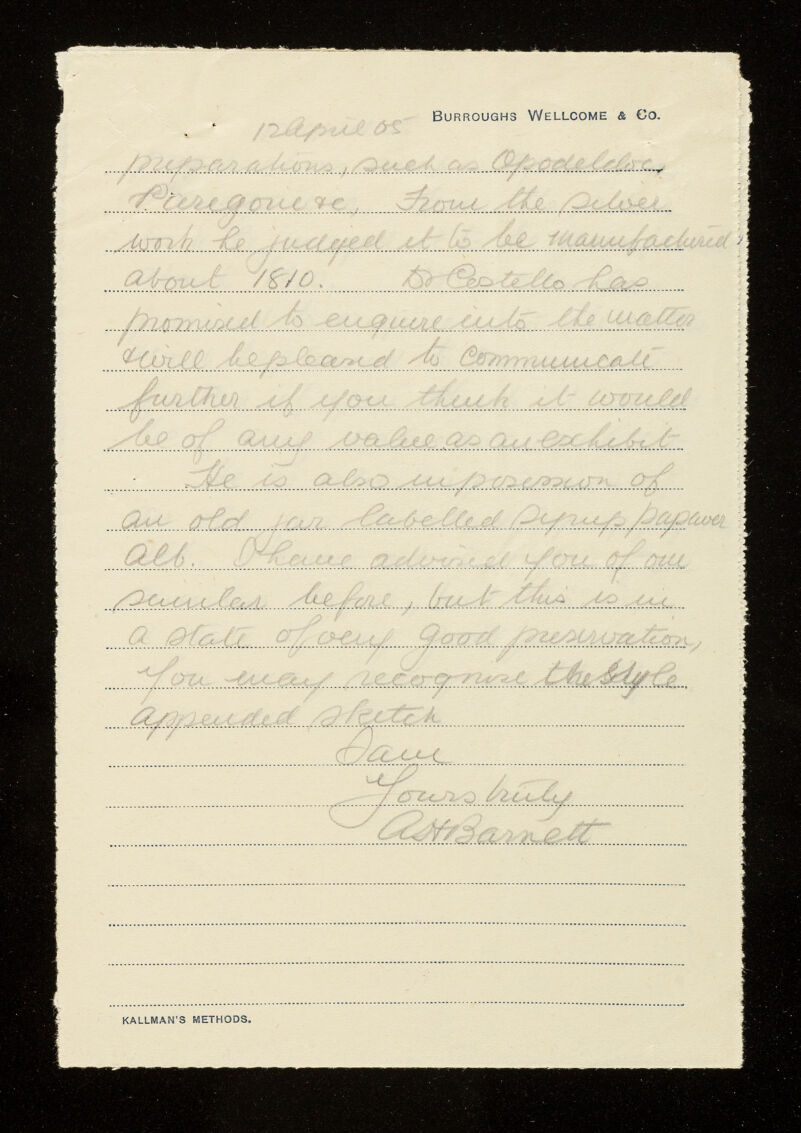 BURROUGHS WELLCOME & CO.
12 April 05
preparations, such as Opodeldoc,
Paregoric &c, From the silver
work he judged it to be manufactured
about 1810. Dr Costello has
promised to enquire into the matter
& will be pleased to communicate
further if you think it would
be of any value as an exhibit
He is also in posession of
an old jar labelled Syrup Papaver
Alb. I have advised you of one
similar before, but this is in
a state of very good preservation,
You may recognise the style
appended sketch
I am
Yours truly
A H Barnett
KALLMAN'S METHODS.